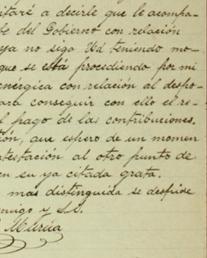 itaré a decirle que le acompa-
be del Gobierno con relación
ya no siga Ud teniendo mo-
que se está procediendo por mi
enérgica con relación al despo-
ara conseguir con ello el re-
l hago de las contribuciones.
ión, que espero de un momen
ntestación al otro punto de
en su ya citada grata.
mas distinguida se despide
amigo y S.S.
Murcia